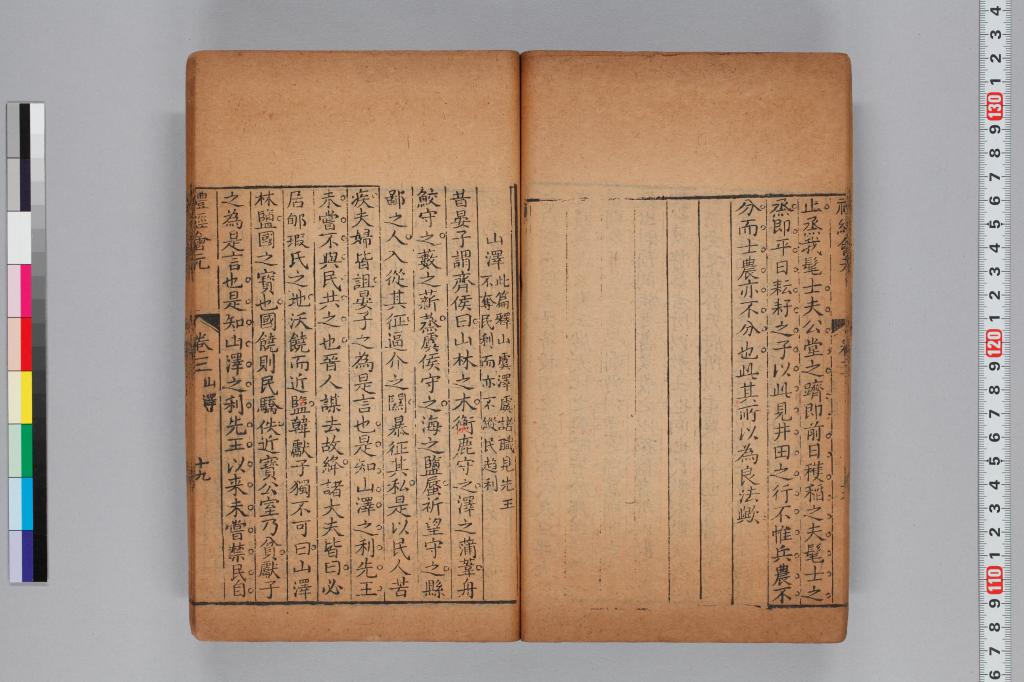 止烝我髦士夫公堂之躋即前日穫稻之夫髦士之
烝即平日耘耔之子以此見井田之行不惟兵農不
分而士農亦不分也此其所以為良法歟
山澤
此篇釋山虞澤虞諸職見先王
不奪民利而亦不縱民趋利
昔晏子謂齊侯曰山林之木衡鹿守之澤之蒲葦舟
鮫守之藪之薪蒸虞侯守之海之鹽蜃祈望守之縣
鄙之人入從其征逼介之關暴征其私是以民人苦
疾夫婦皆詛晏子之為是言也是知山澤之利先王
未嘗不與民共之也晉人謀去故絳諸大夫皆曰必
居郇瑕氏之地沃饒而近鹽韓獻子獨不可曰山澤
林鹽國之寳也國饒則民驕佚近寳公室乃貧獻子
之為是言也是知山澤之利先王以来未嘗禁民自
禮經會元
卷三
山澤
十九